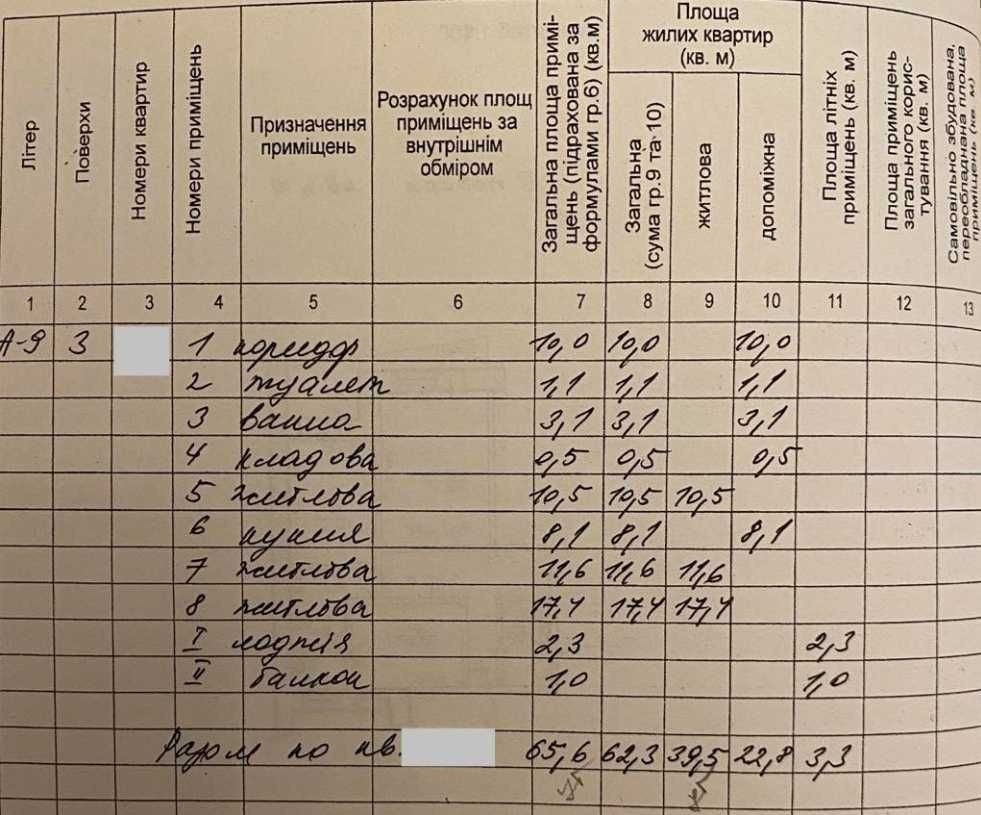 Літер
Поверхи
Номери квартир
Номери приміщень
Призначення приміщень
Розрахунок площ приміщень за внутрішнім обміром
Загальна площа приміщень (підрахована за формулами гр.6) (кв.м)
Площа жилих квартир (кв. м)
Загальна (сума гр.9 та 10)
житлова
допоміжна
Площа літніх приміщень (кв. м)
Площа приміщень загального користування (кв. м)
Самовільно збудована, переобладнана площа приміщень (кв. м)
1 2 3 4 5 6 7 8 9 10 11 12 13
А-9 3 1 коридор 10,0 10,0 10,0
2 туалет 1,1 1,1 1,1
3 ванна 3,1 3,1 3,1
4 кладова 0,5 0,5 0,5
5 житлова 10,5 10,5 10,5
6 кухня 8,1 8,1 8,1
7 житлова 11,6 11,6 11,6
8 житлова 17,4 17,4 17,4
I лоджія 2,3 2,3
II балкон 1,0 1,0
Разом по кв. 65,6 62,3 39,5 22,8 3,3